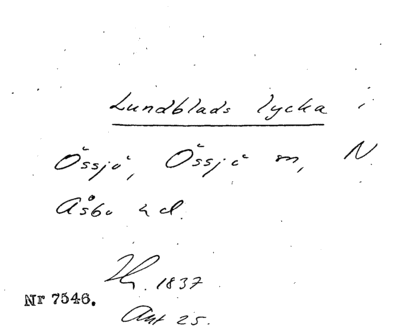 Lundblads lycka i
Össjö, Össjö sn, N.
Åsbo hd.
1837
Nr 7546.
Akt 25.